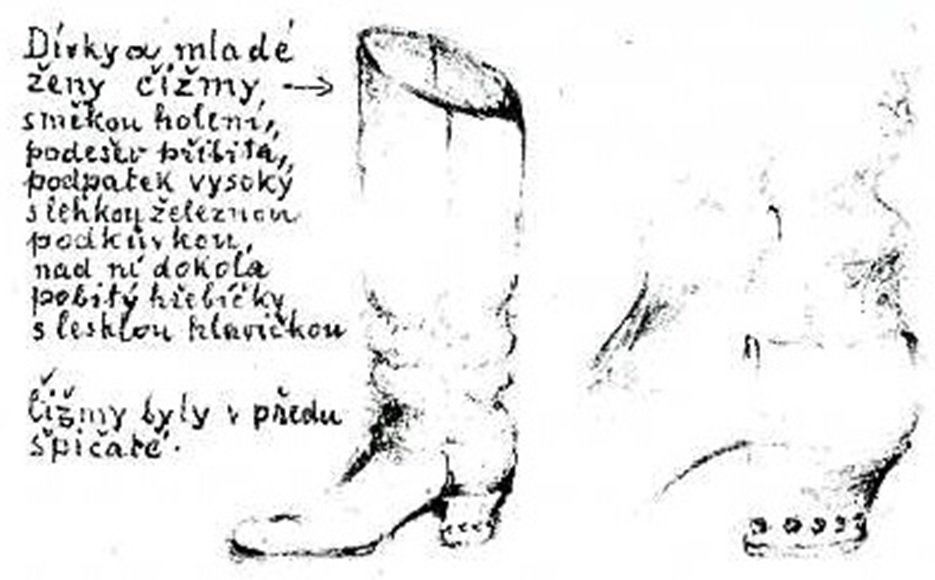 Dívky a mladé
ženy čížmy →
s měkou holení,
podešev přibitá,
podpatek vysoký
s lehkou železnou
podkůvkou,
nad ní dokola
pobitý hřebíčky
s lesklou hlavičkou
Čížmy byly v předu
špičaté.